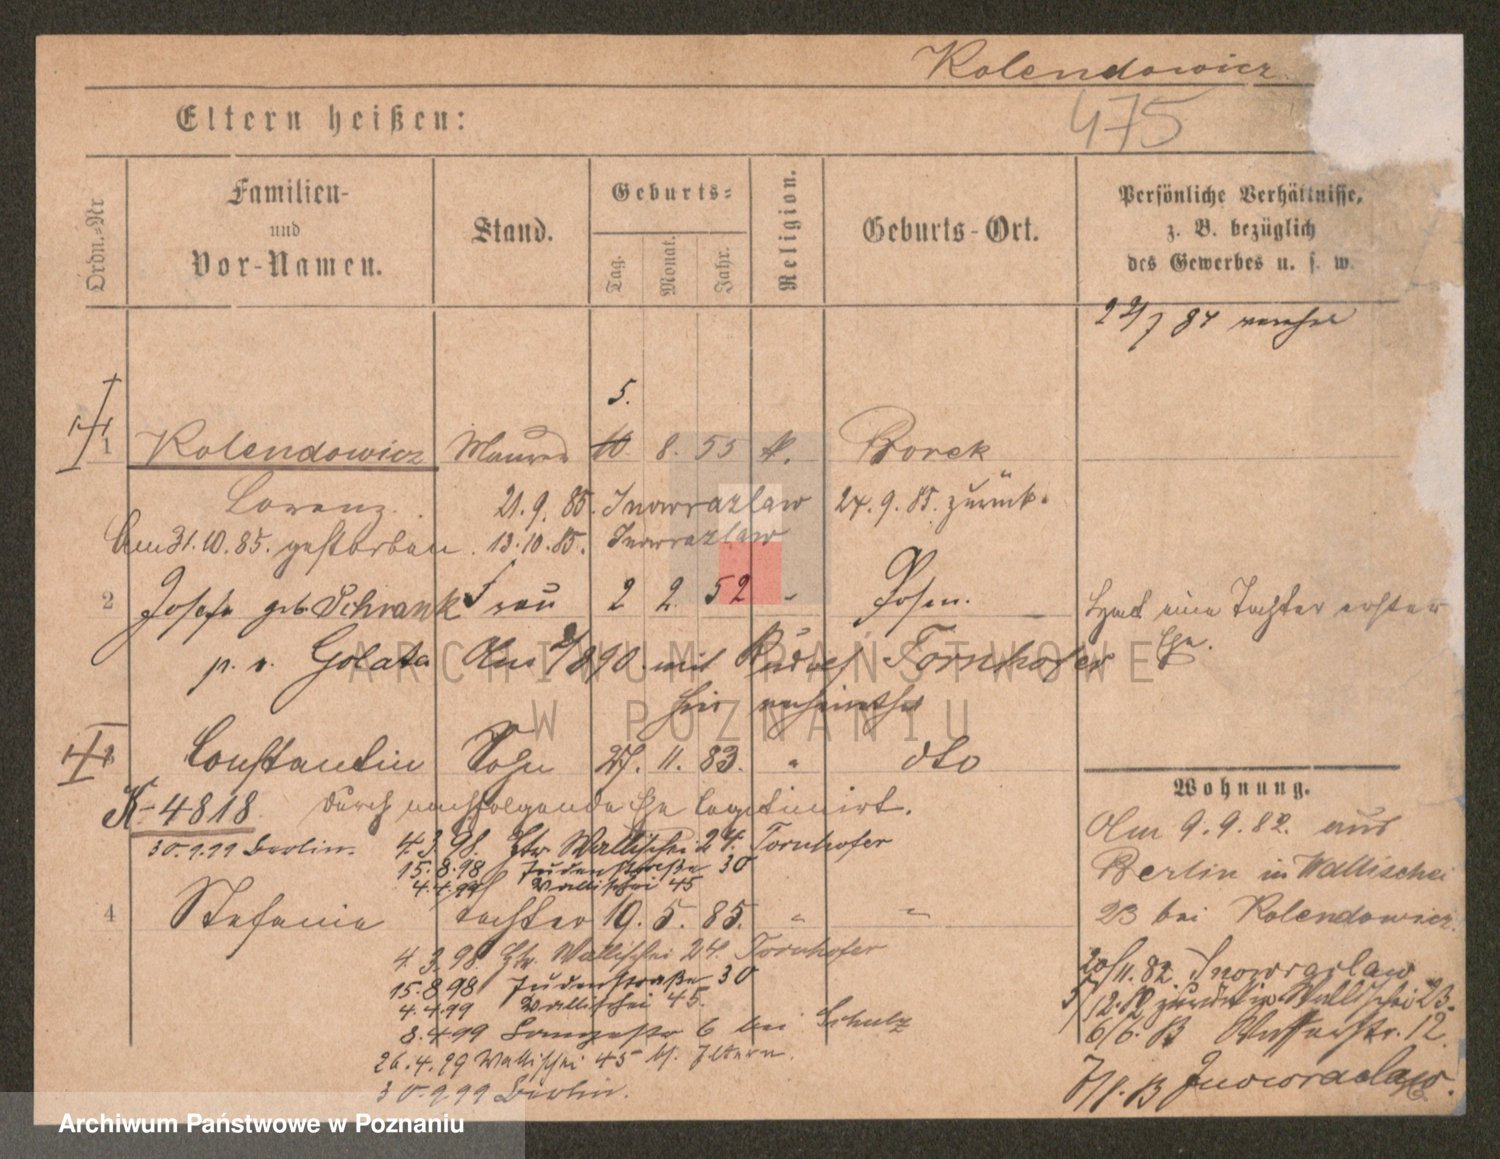 Kolendowicz
475
Eltern heißen:
Ordn.-Nr
Familien-
und
Vor-Namen.
Stand.
Geburts-
Tag.
Monat.
Jahr.
Religion.
Geburts-Ort.
Persönliche Verhältnisse,
z. B. bezüglich
des Gewerbes u. s. w.
5.
1 Kolendowicz Maurer 10 8. 55 k. Borek
Lorenz. 21.9.85. Inowrazlaw 24.9.85. zurück.
Am 31.10.85. gestorben. 13.10.85. Inowrazlaw
2 Josefa geb. Schrank Frau 2 2. 52 " Posen. Hat eine Tochter erster
Ehe.
p. v. Golata Am 890. mit Rudolf Tornhofer
hier verheirathet
3 Constantin Sohn 27. 11. 83. " dto
K-4818 durch nachfolgende Ehe legitimirt.
30.9.99 Berlin. 4.3.98. Wallischei 24. Tornhofer
15.8.98 Judenstraße 30
4.4.99 Wallischei 45
4 Stefania Tochter 19. 5. 85. " "
4.3.98. Wallischei 24. Tornhofer
15.8.98 Judenstraße 30
4.4.99 Wallischei 45.
8.4.99 Langestr 6 bei Schulz
26.4.99 Wallischei 45 Eltern.
30.9.99 Berlin.
Wohnung.
Am 9.9.82. aus
Berlin in Wallischei
23 bei Kolendowicz.
20/11.82. Inowraclaw
zurück in Wallischei 23.
6/6. 83 Wasserstr. 12.
Inowraclaw.
ARCHIWUM PAŃSTWOWE
W POZNANIU
Archiwum Państwowe w Poznaniu